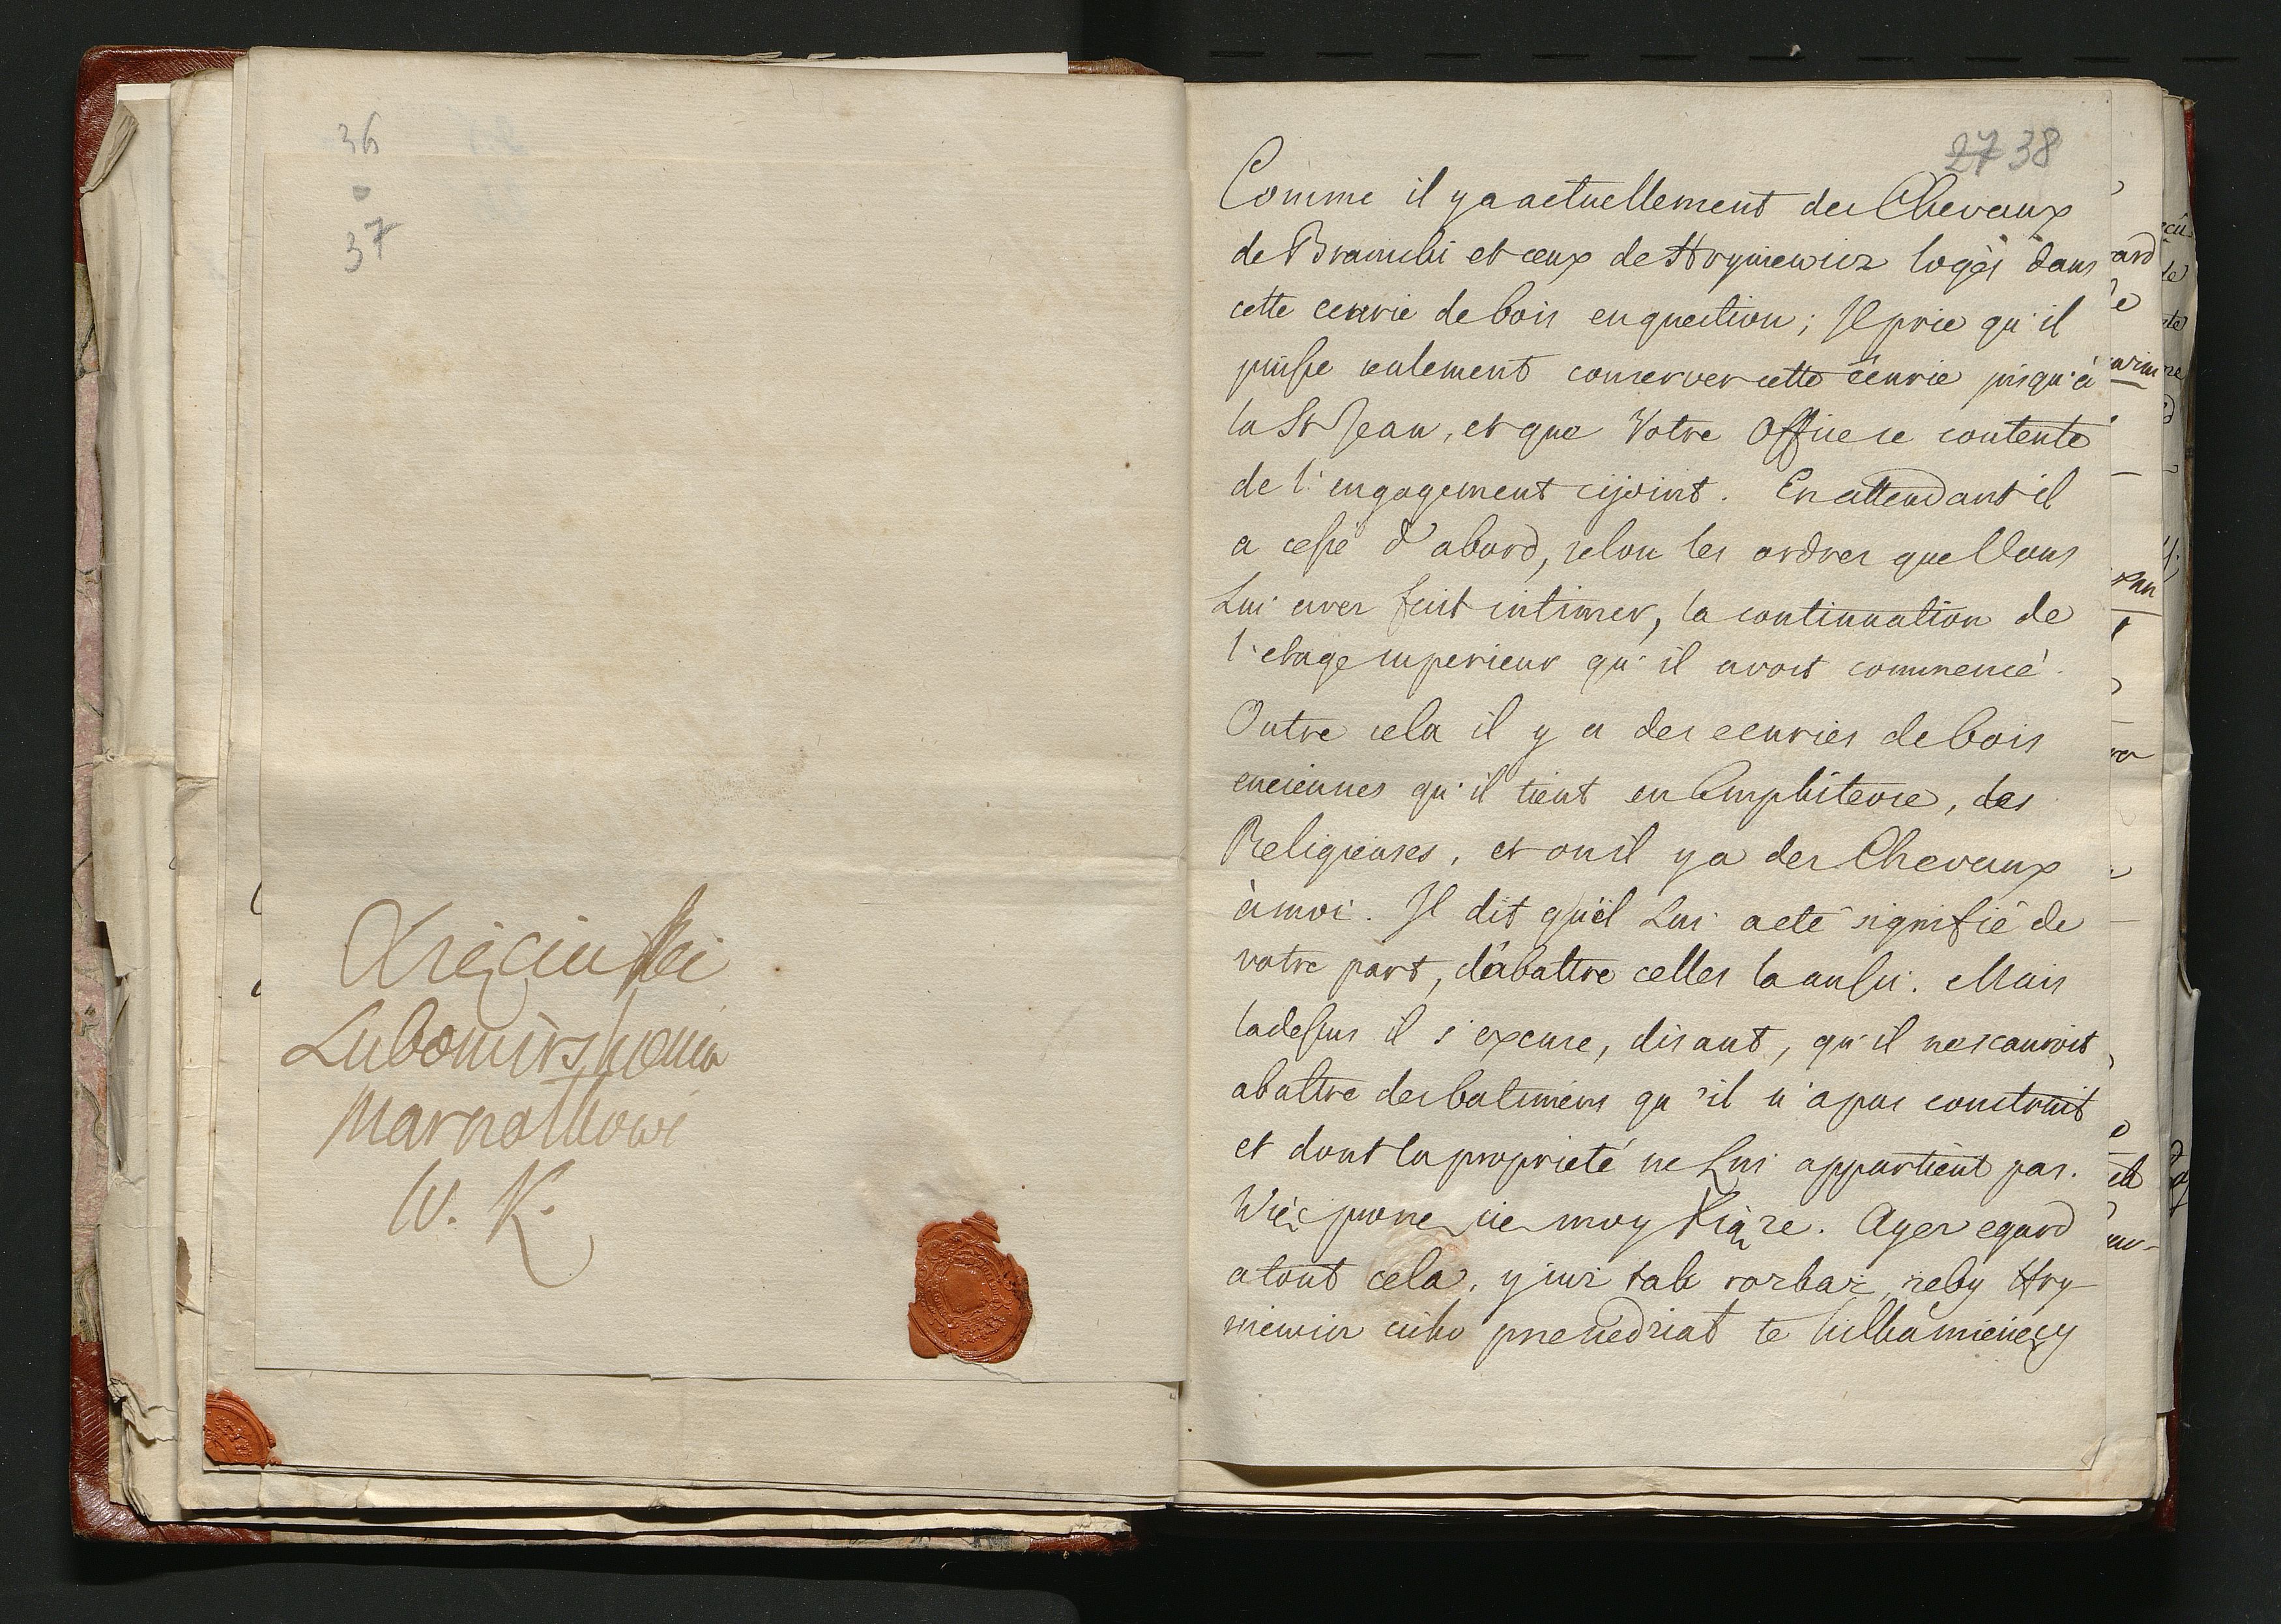 36
37
Xięciu Jci
Lubomirskiemu
Marszałkowi
W. K.
27 38
Comme il y a actuellement des Chevaux
de Branicki et ceux de Hryniewicz logés dans
cette ecurie de bois en question; Il prie qu'il
puisse seulement conserver cette écurie jusqu'à
la St Jean, et que Votre Office se contente
de l'engagement cijoint. En attendant il
a cessé d'abord, selon les ordres que Vous
Lui avez fait intimer, la continuation de
l'etage superieur qu'il avoit commencé.
Outre cela il y a des ecuries de bois
anciennes qu'il tient en Emphiteose, des
Religieuses, et ou il y a des Chevaux
à moi. Il dit qu'il Lui a eté signifié de
votre part, d'abattre celles la aussi. Mais
ladessus il s'excuse, disant, qu'il ne scauroit
abattre des batimens qu'il n'a pas construit
et dont la proprieté ne Lui appartient pas.
Więc proszę cię moy Xiąże. Ayez egard
a tout cela, y iuż tak rozkaż, żeby Hry-
niewicz cicho przesiedział te kilka miesięcy